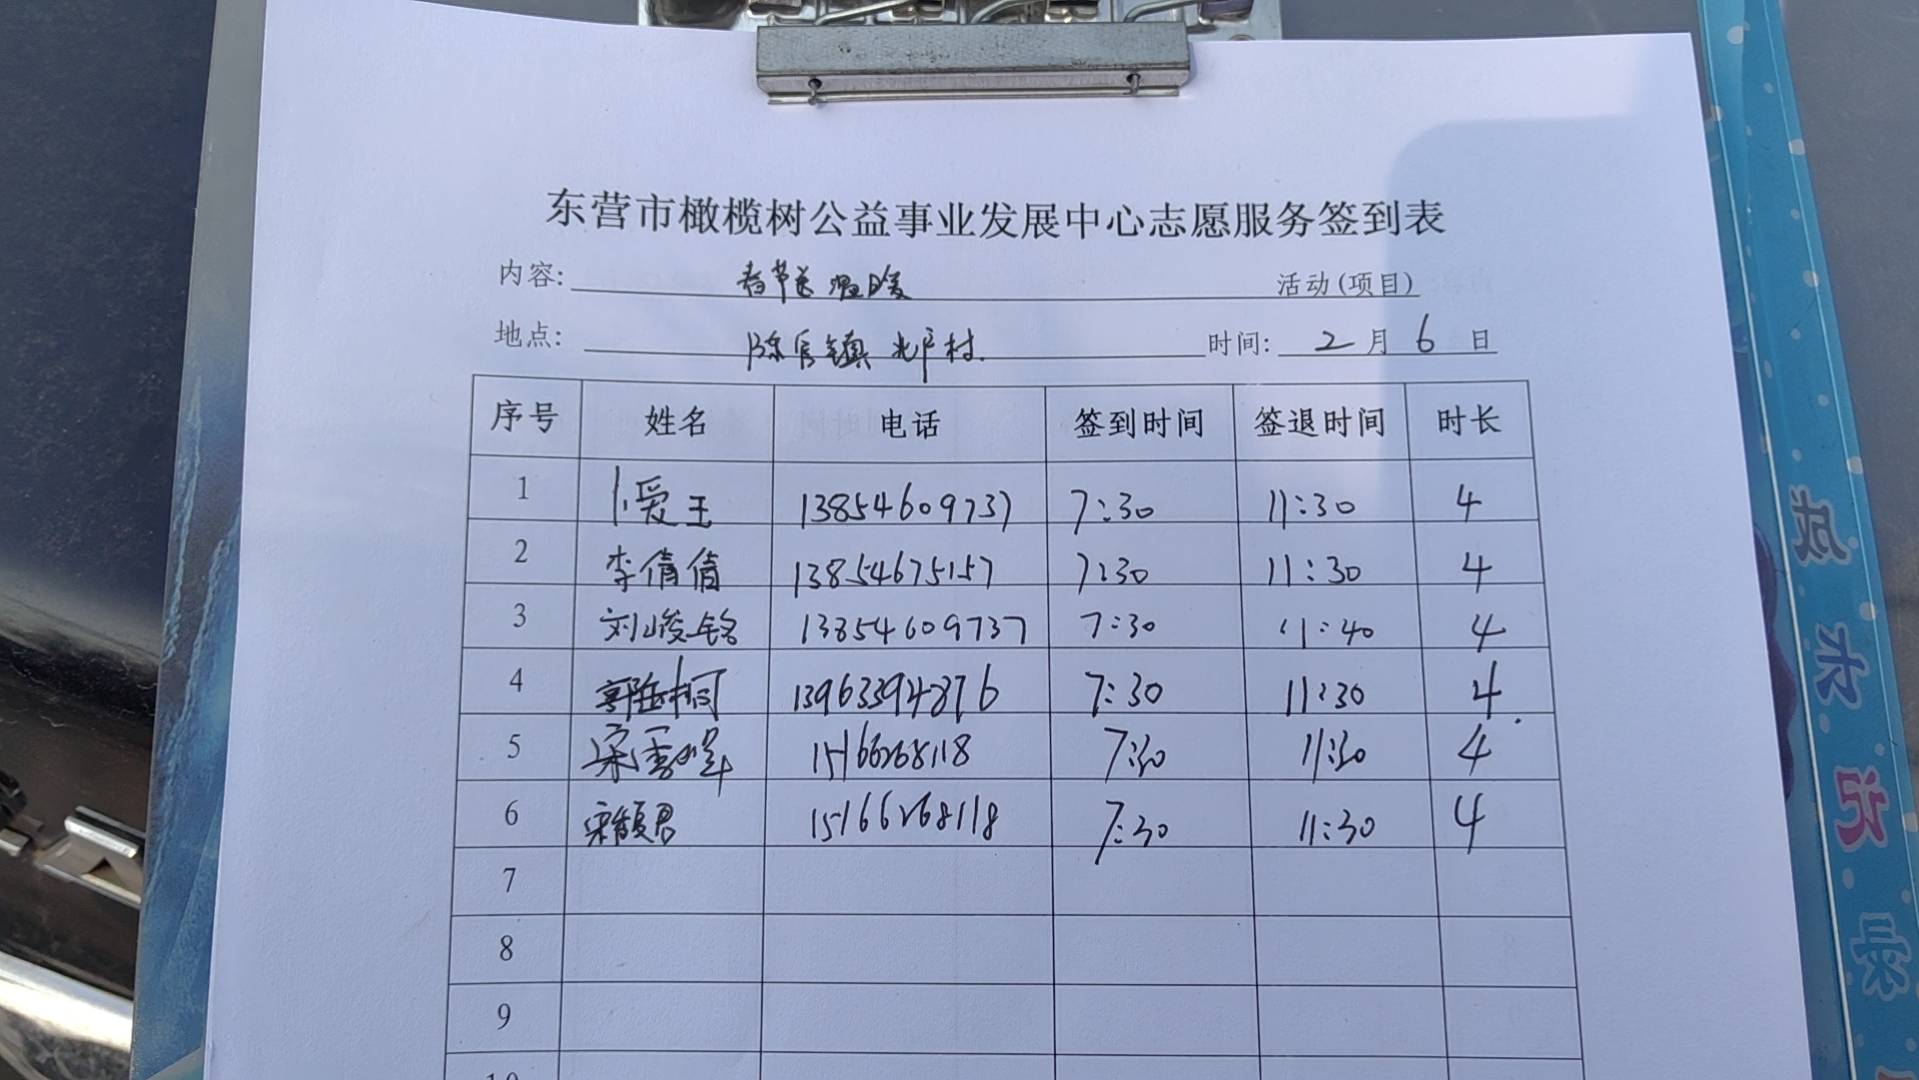 东营市橄榄树公益事业发展中心志愿服务签到表
内容: 春节送温暖 活动(项目)
地点: 陈官镇 村 时间: 2月6日
序号 姓名 电话 签到时间 签退时间 时长
1 卜爱玉 13854609737 7:30 11:30 4
2 李倩倩 13854675157 7:30 11:30 4
3 刘峻铭 13854609737 7:30 11:40 4
4 郭 柯 13963394876 7:30 11:30 4
5 宋 15166268118 7:30 11:30 4
6 15166268118 7:30 11:30 4
7
8
9
10
成长记录